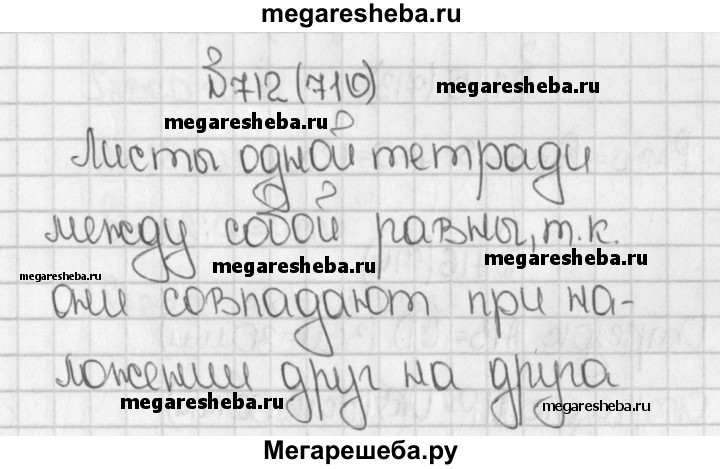 megaresheba.ru
№712(710)
megaresheba.ru
megaresheba.ru
Листы одной тетради
между собой равны, т.к.
megaresheba.ru
megaresheba.ru
megaresheba.ru
они совпадают при на-
ложении друг на друга
megaresheba.ru
megaresheba.ru
Мегарешеба.ру